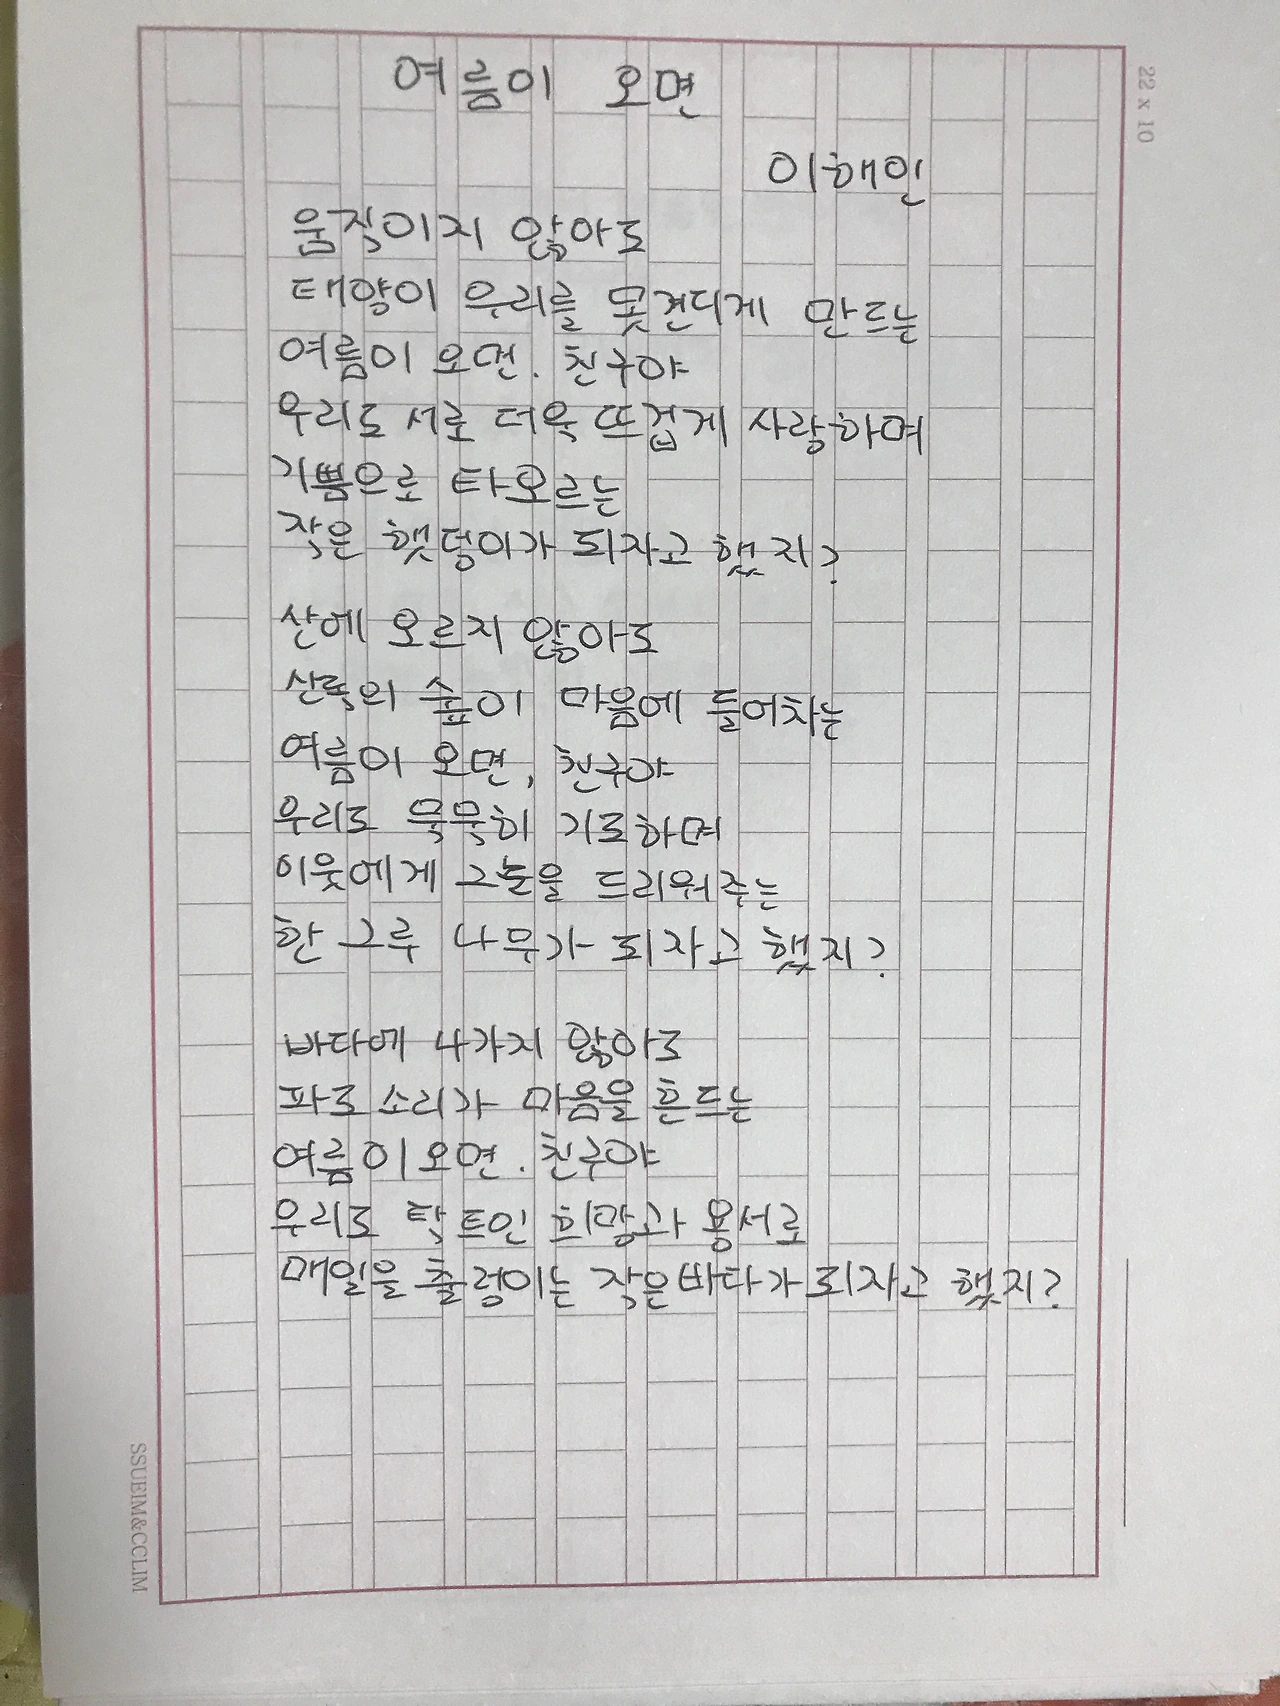 22 x 10
여름이 오면
이해인
움직이지 않아도
태양이 우리를 못견디게 만드는
여름이 오면. 친구야
우리도 서로 더욱 뜨겁게 사랑하며
기쁨으로 타오르는
작은 햇덩이가 되자고 했지?
산에 오르지 않아도
산록의 숲이 마음에 들어차는
여름이 오면, 친구야
우리도 묵묵히 기도하며
이웃에게 그늘을 드리워주는
한 그루 나무가 되자고 했지?
바다에 나가지 않아도
파도 소리가 마음을 흔드는
여름이 오면. 친구야
우리도 탁 트인 희망과 용서로
매일을 출렁이는 작은 바다가 되자고 했지?
SSUEIM&CCLIM